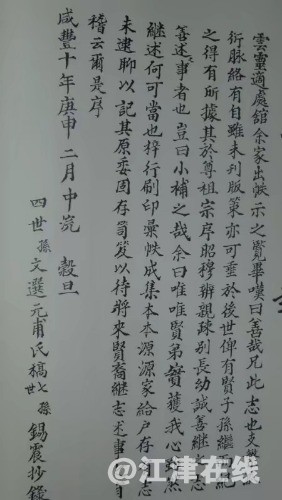 雲靈適處舘余家出帙示之覽畢嘆曰善哉兄此志也支
衍脉絡有自雖未列版篆亦可垂於後世俾有賢子孫繼
之得有所據其於尊祖宗序昭穆辨親疎别長幼誠善継志
善述事者也豈曰小補之哉余曰唯唯賢弟實獲我心
継述何可當也梓行刷印彙帙成集本本源源家給户存
未逮聊以記其原委固存笥笈以待將來賢裔継志述事
稽云爾是序
咸豐十年庚申二月中浣 穀旦
四世孫文選元甫氏稿七世孫錫震抄錄
@江津在线